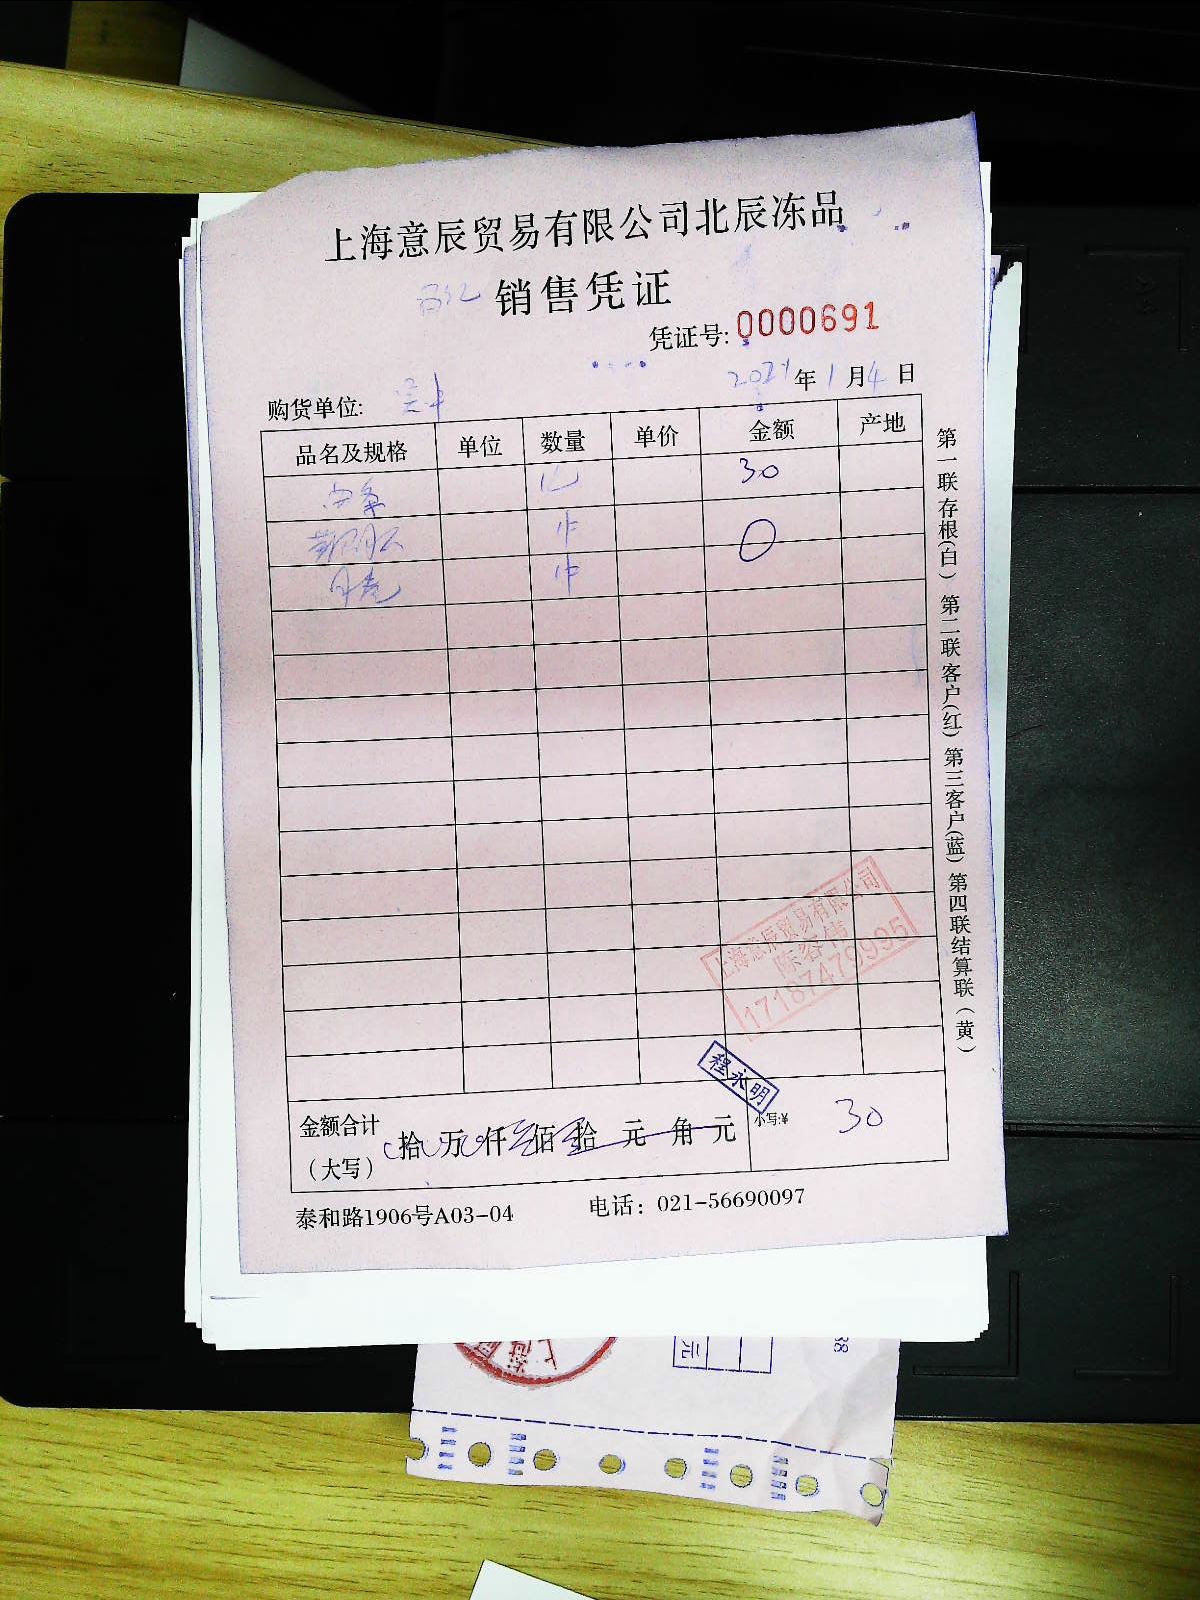 上海意辰贸易有限公司北辰冻品
销售凭证
凭证号: 0000691
年 1 月 4 日
购货单位:
品名及规格 单位 数量 单价 金额 产地
30
0
上海意辰贸易有限公司
陈容伟
17187479995
程永明
金额合计 拾 万 仟 佰 拾 元 角 元 小写:¥ 30
(大写)
泰和路1906号A03-04 电话: 021-56690097
第一联存根(白) 第二联客户(红) 第三客户(蓝) 第四联结算联(黄)
元
38